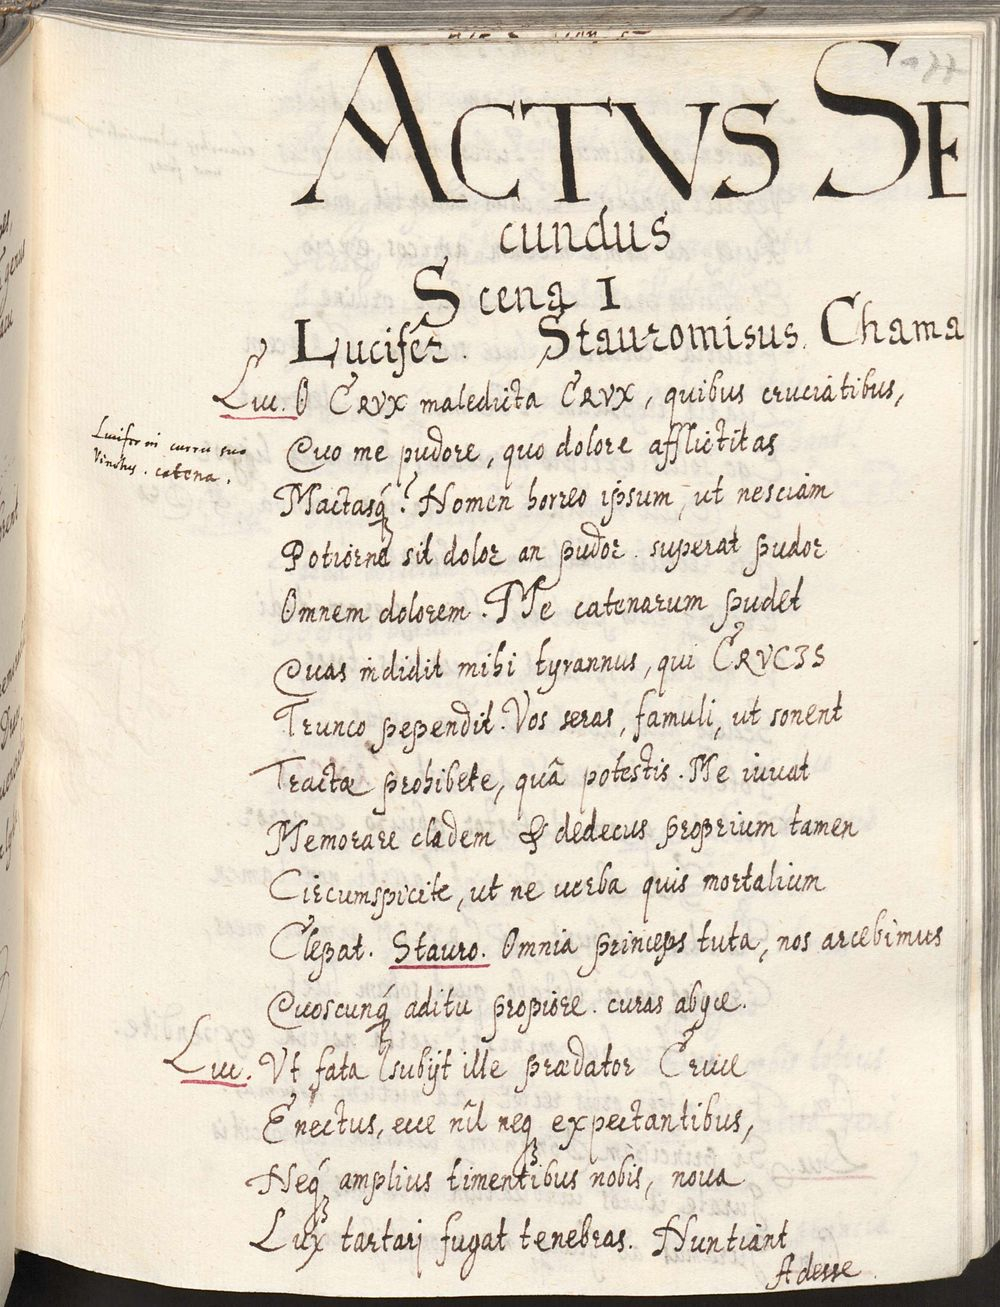 ACTVS SE
cundus
Scena I
Lucifer. Stauromisus. Chama
Luc. O CRVX maledicta CRVX, quibus cruciatibus,
Lucifer in curru suo
vinctus. catena.
Quo me pudore, quo dolore afflictitas
Mactasq́? Nomen horreo ipsum, ut nesciam
Potiorne sit dolor an pudor. superat pudor
Omnem dolorem. Me catenarum pudet
Quas indidit mihi tyrannus, qui CRVCIS
Trunco pependit. Vos seras, famuli, ut sonent
Tractæ prohibete, quã potestis. Me iuuat
Memorare cladem & dedecus proprium tamen
Circumspicite, ut ne uerba quis mortalium
Clepat. Stauro. Omnia princeps tuta, nos arcebimus
Quoscunq́ aditu propiore. curas abijce.
Luc. Vt fata subijt ille prædator Cruce
Enectus, ecce nĩl neq expectantibus,
Neq́ amplius timentibus nobis, noua
Lux tartari fugat tenebras. Nuntiant
Adesse